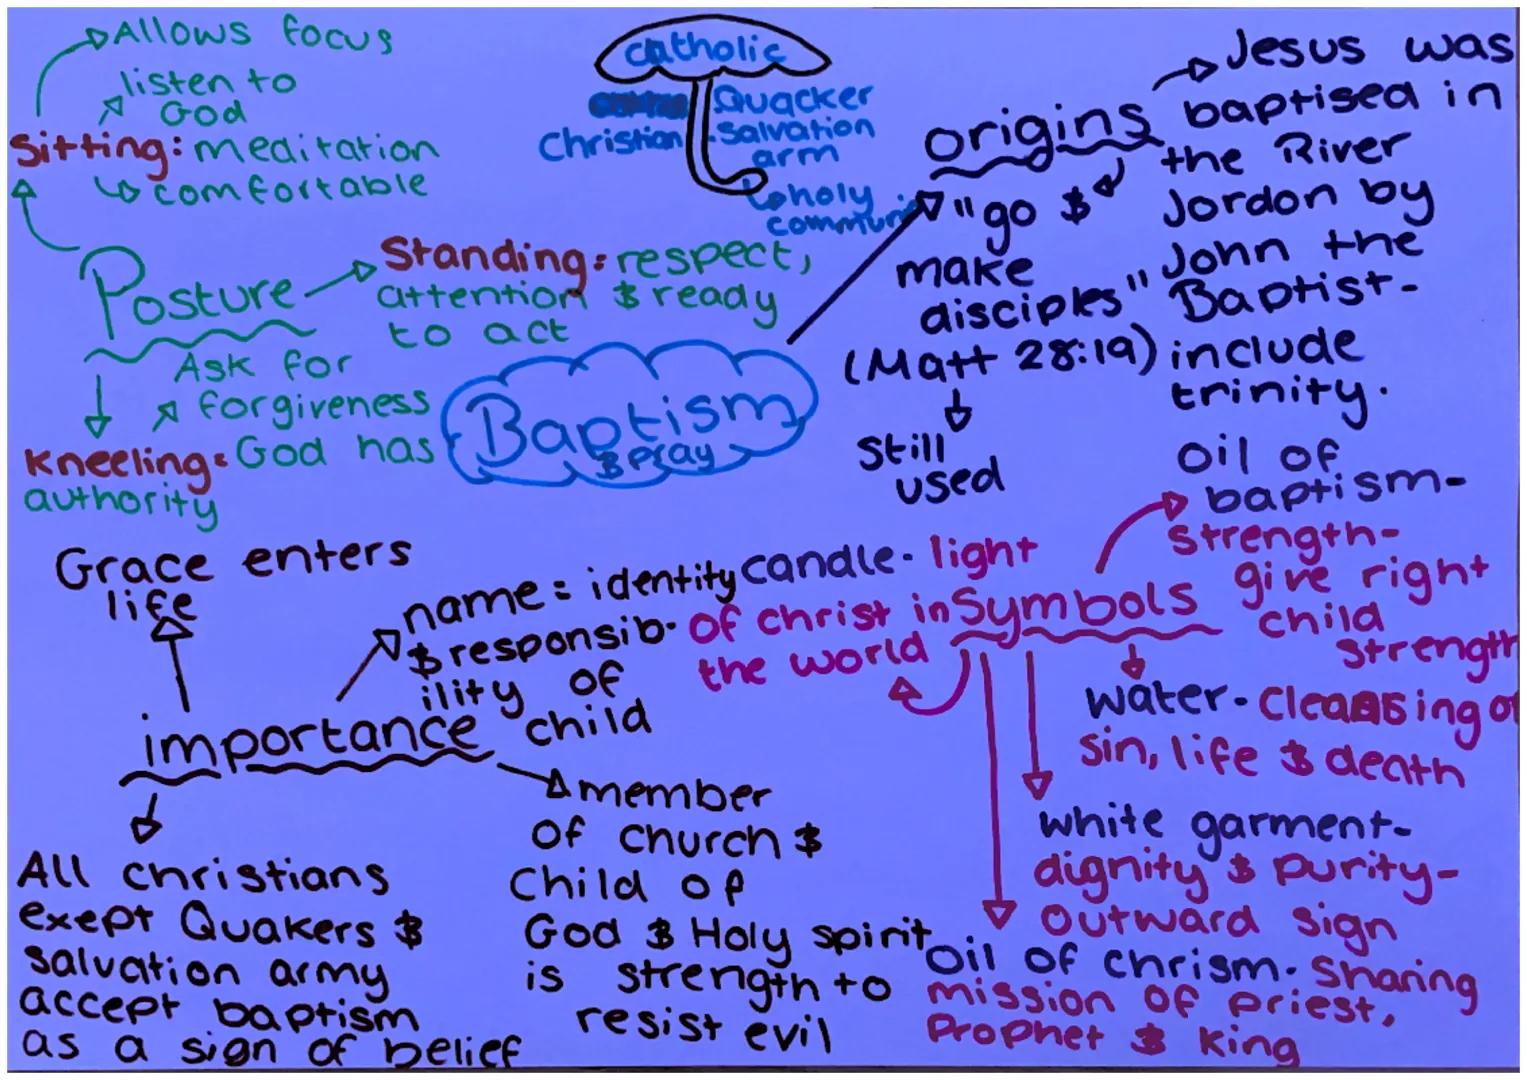 Allows focus
listen to
God
Sitting: meditation
comfortable
Posture
Standing: respect,
attention & ready
to act
Ask for
forgiveness
Kneeling: God has
authority
catholic
Christian
Quacker
Salvation
arm
holy
communi
Baptism
& pray
origins
Jesus was
baptised in
the River
Jordon by
John the
Baptist-
include
trinity.
"go &
make
disciples"
(Matt 28:19)
still
used
Grace enters
life
name = identity
& responsib-
ility of
child
importance
member
of church &
Child of
God & Holy spirit
is strength to
resist evil
All christians
exept Quakers &
salvation army
accept baptism
as a sign of belief
Symbols
candle- light
of christ in
the world
oil of
baptism-
strength-
give right
child
strength
water- Cleansing of
sin, life & death
white garment-
dignity & purity-
outward sign
oil of chrism- Sharing
mission of priest,
Prophet & king